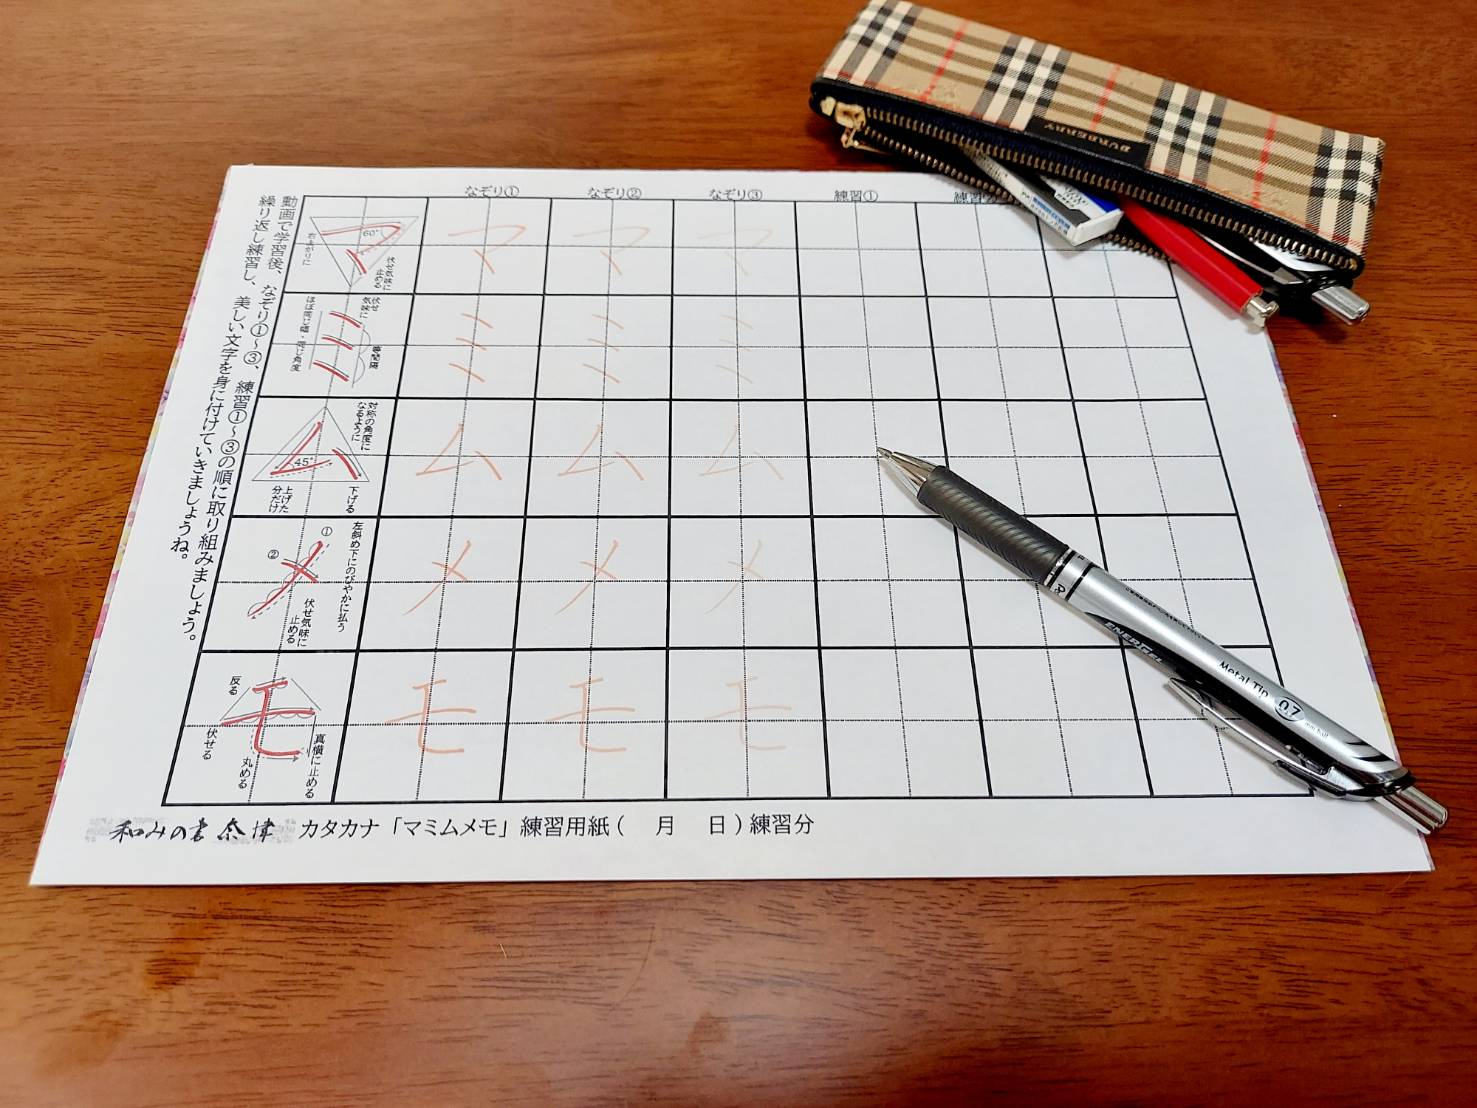 なぞり①
なぞり②
なぞり③
練習①
練習
動画で学習後、なぞり①～③、練習①～③の順に取り組みましょう。
繰り返し練習し、美しい文字を身に付けていきましょうね。
60°
右上がりに
マ マ マ
伏せ
気味に
ミ ミ ミ
対称の角度に
なるように
45°
上げた
分だけ
下げる
ム ム ム
左斜め下にのびやかに払う
①
②
伏せ気味に
止める
メ メ メ
反る
伏せる
丸める
真横に止める
モ モ モ
和みの書 奈津 カタカナ「マミムメモ」練習用紙( 月 日)練習分
BURBERRY
ENERGEL
Metal Tip
0.7